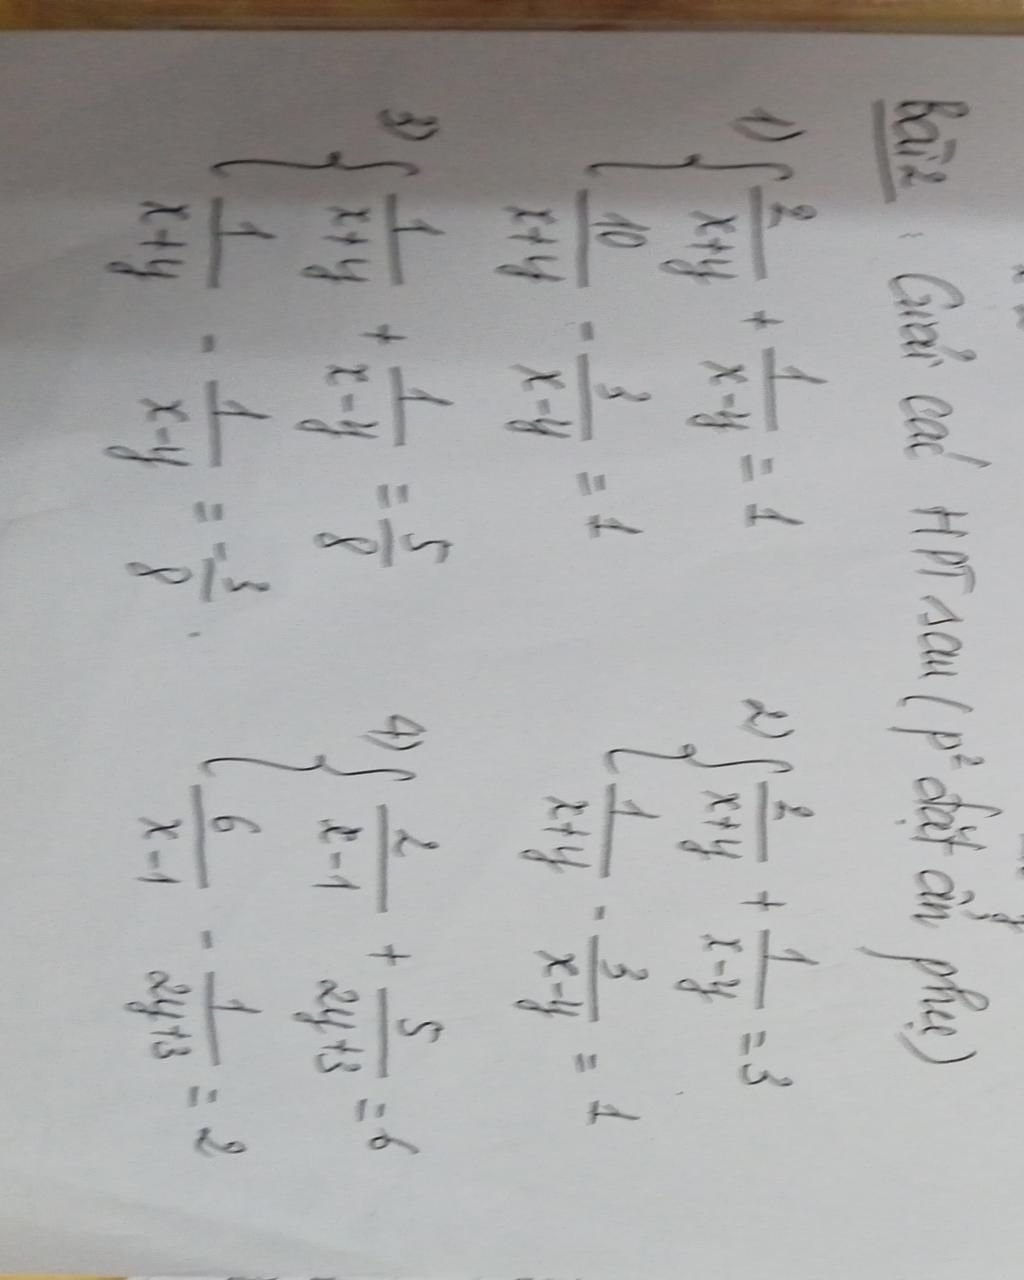 Bài 2: Giải các HPT sau (p² đặt ẩn phụ)
1) { 2/(x+y) + 1/(x-y) = 1
10/(x+y) - 3/(x-y) = 1
2) { 2/(x+y) + 1/(x-y) = 3
1/(x+y) - 3/(x-y) = 1
3) { 1/(x+y) + 1/(x-y) = 5/8
1/(x+y) - 1/(x-y) = -3/8
4) { 2/(x-1) + 5/(2y+3) = 6
6/(x-1) - 1/(2y+3) = 2